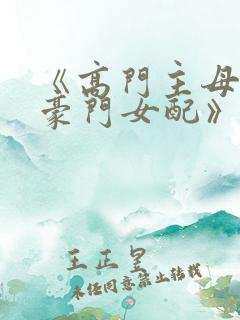 《高門主母
豪門女配》
王正皇
未经同意禁止转载